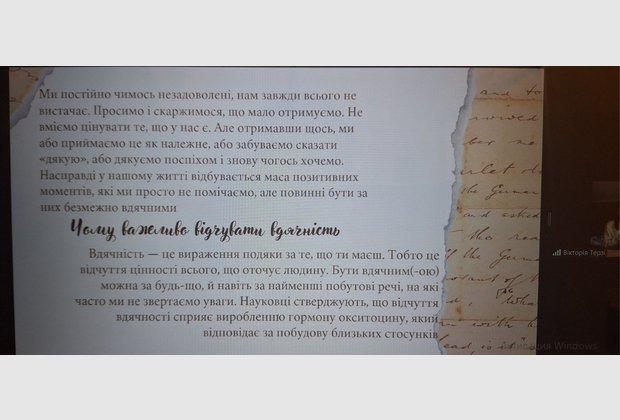 Ми постійно чимось незадоволені, нам завжди всього не
вистачає. Просимо і скаржимося, що мало отримуємо. Не
вміємо цінувати те, що у нас є. Але отримавши щось, ми
або приймаємо це як належне, або забуваємо сказати
«дякую», або дякуємо поспіхом і знову чогось хочемо.
Насправді у нашому житті відбувається маса позитивних
моментів, які ми просто не помічаємо, але повинні бути за
них безмежно вдячними
Чому важливо відчувати вдячність
Вдячність — це вираження подяки за те, що ти маєш. Тобто це
відчуття цінності всього, що оточує людину. Бути вдячним(-ою)
можна за будь-що, й навіть за найменші побутові речі, на які
часто ми не звертаємо уваги. Науковці стверджують, що відчуття
вдячності сприяє виробленню гормону окситоцину, який
відповідає за побудову близьких стосунків
and to
the German
and asked
the rea
of the Germa
, "Wha
with h
Вікторія Терзі
Активация Windows